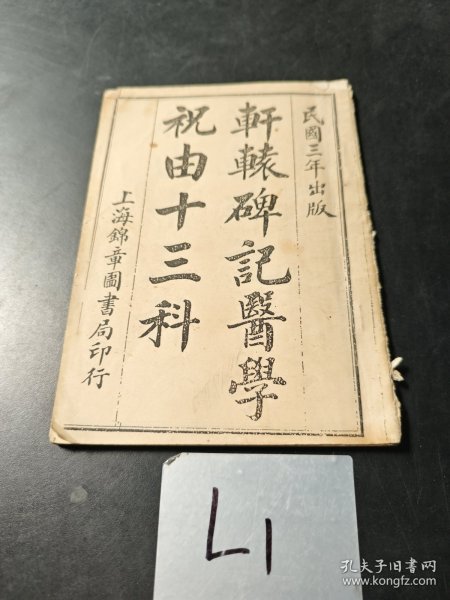 民國三年出版
軒轅碑記醫學
祝由十三科
上海錦章圖書局印行
L1
孔夫子旧书网
www.kongfz.com